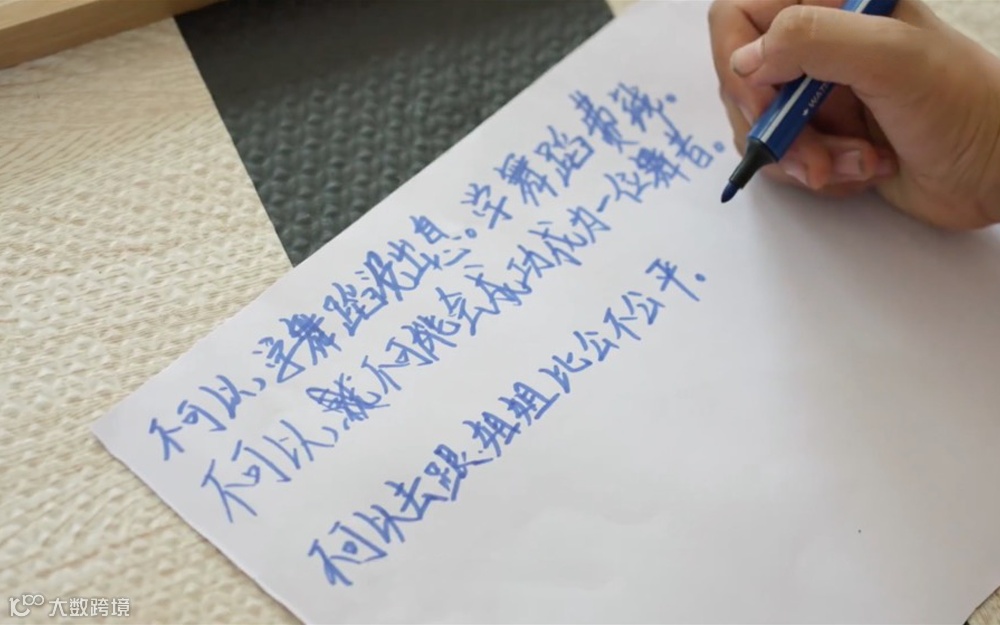 不可以，学舞蹈没出息。学舞蹈费钱。
不可以，我不可能会成功成为一位舞者。
不可以去跟姐姐比公不公平。
WAT
大数跨境